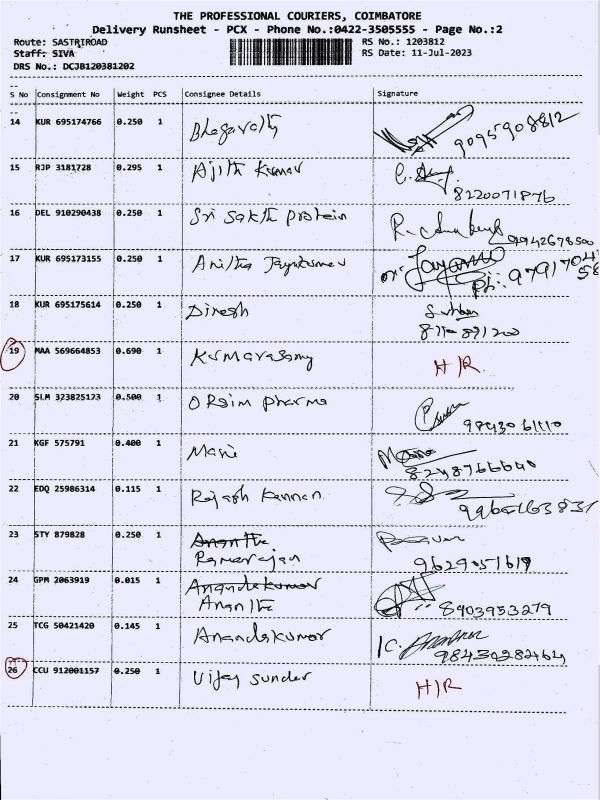 THE PROFESSIONAL COURIERS, COIMBATORE
Delivery Runsheet - PCX - Phone No.:0422-3505555 - Page No.:2
Route: SASTRIROAD RS No.: 1203812
Staff: SIVA RS Date: 11-Jul-2023
DRS No.: DCJB120381202
S No Consignment No Weight PCS Consignee Details Signature
14 KUR 695174766 0.250 1 Bhagavathy 9095908812
15 RJP 3181728 0.295 1 Ajith Kumar 8220071876
16 DEL 910290438 0.250 1 Sri Sakthi Protein 9942678500
17 KUR 695173155 0.250 1 Anitha Jayakumar Ph: 97917042
58
18 KUR 695175614 0.250 1 Dinesh
19 MAA 569664853 0.690 1 Kumarasamy H/R
20 SLM 323825123 0.500 1 Pharma 9843061110
21 KGF 575791 0.400 1 Mani 8248766640
22 EDQ 25986314 0.115 1 Rajash Kannan
23 STY 879828 0.250 1 Anantha
Ramarajan 9629051619
24 GPM 2063919 0.015 1 Anandakumar
Anantha 8903953279
25 TCG 50421420 0.145 1 Anandakumar 9843028246
26 CCU 912001157 0.250 1 Vijay Sunder H/R